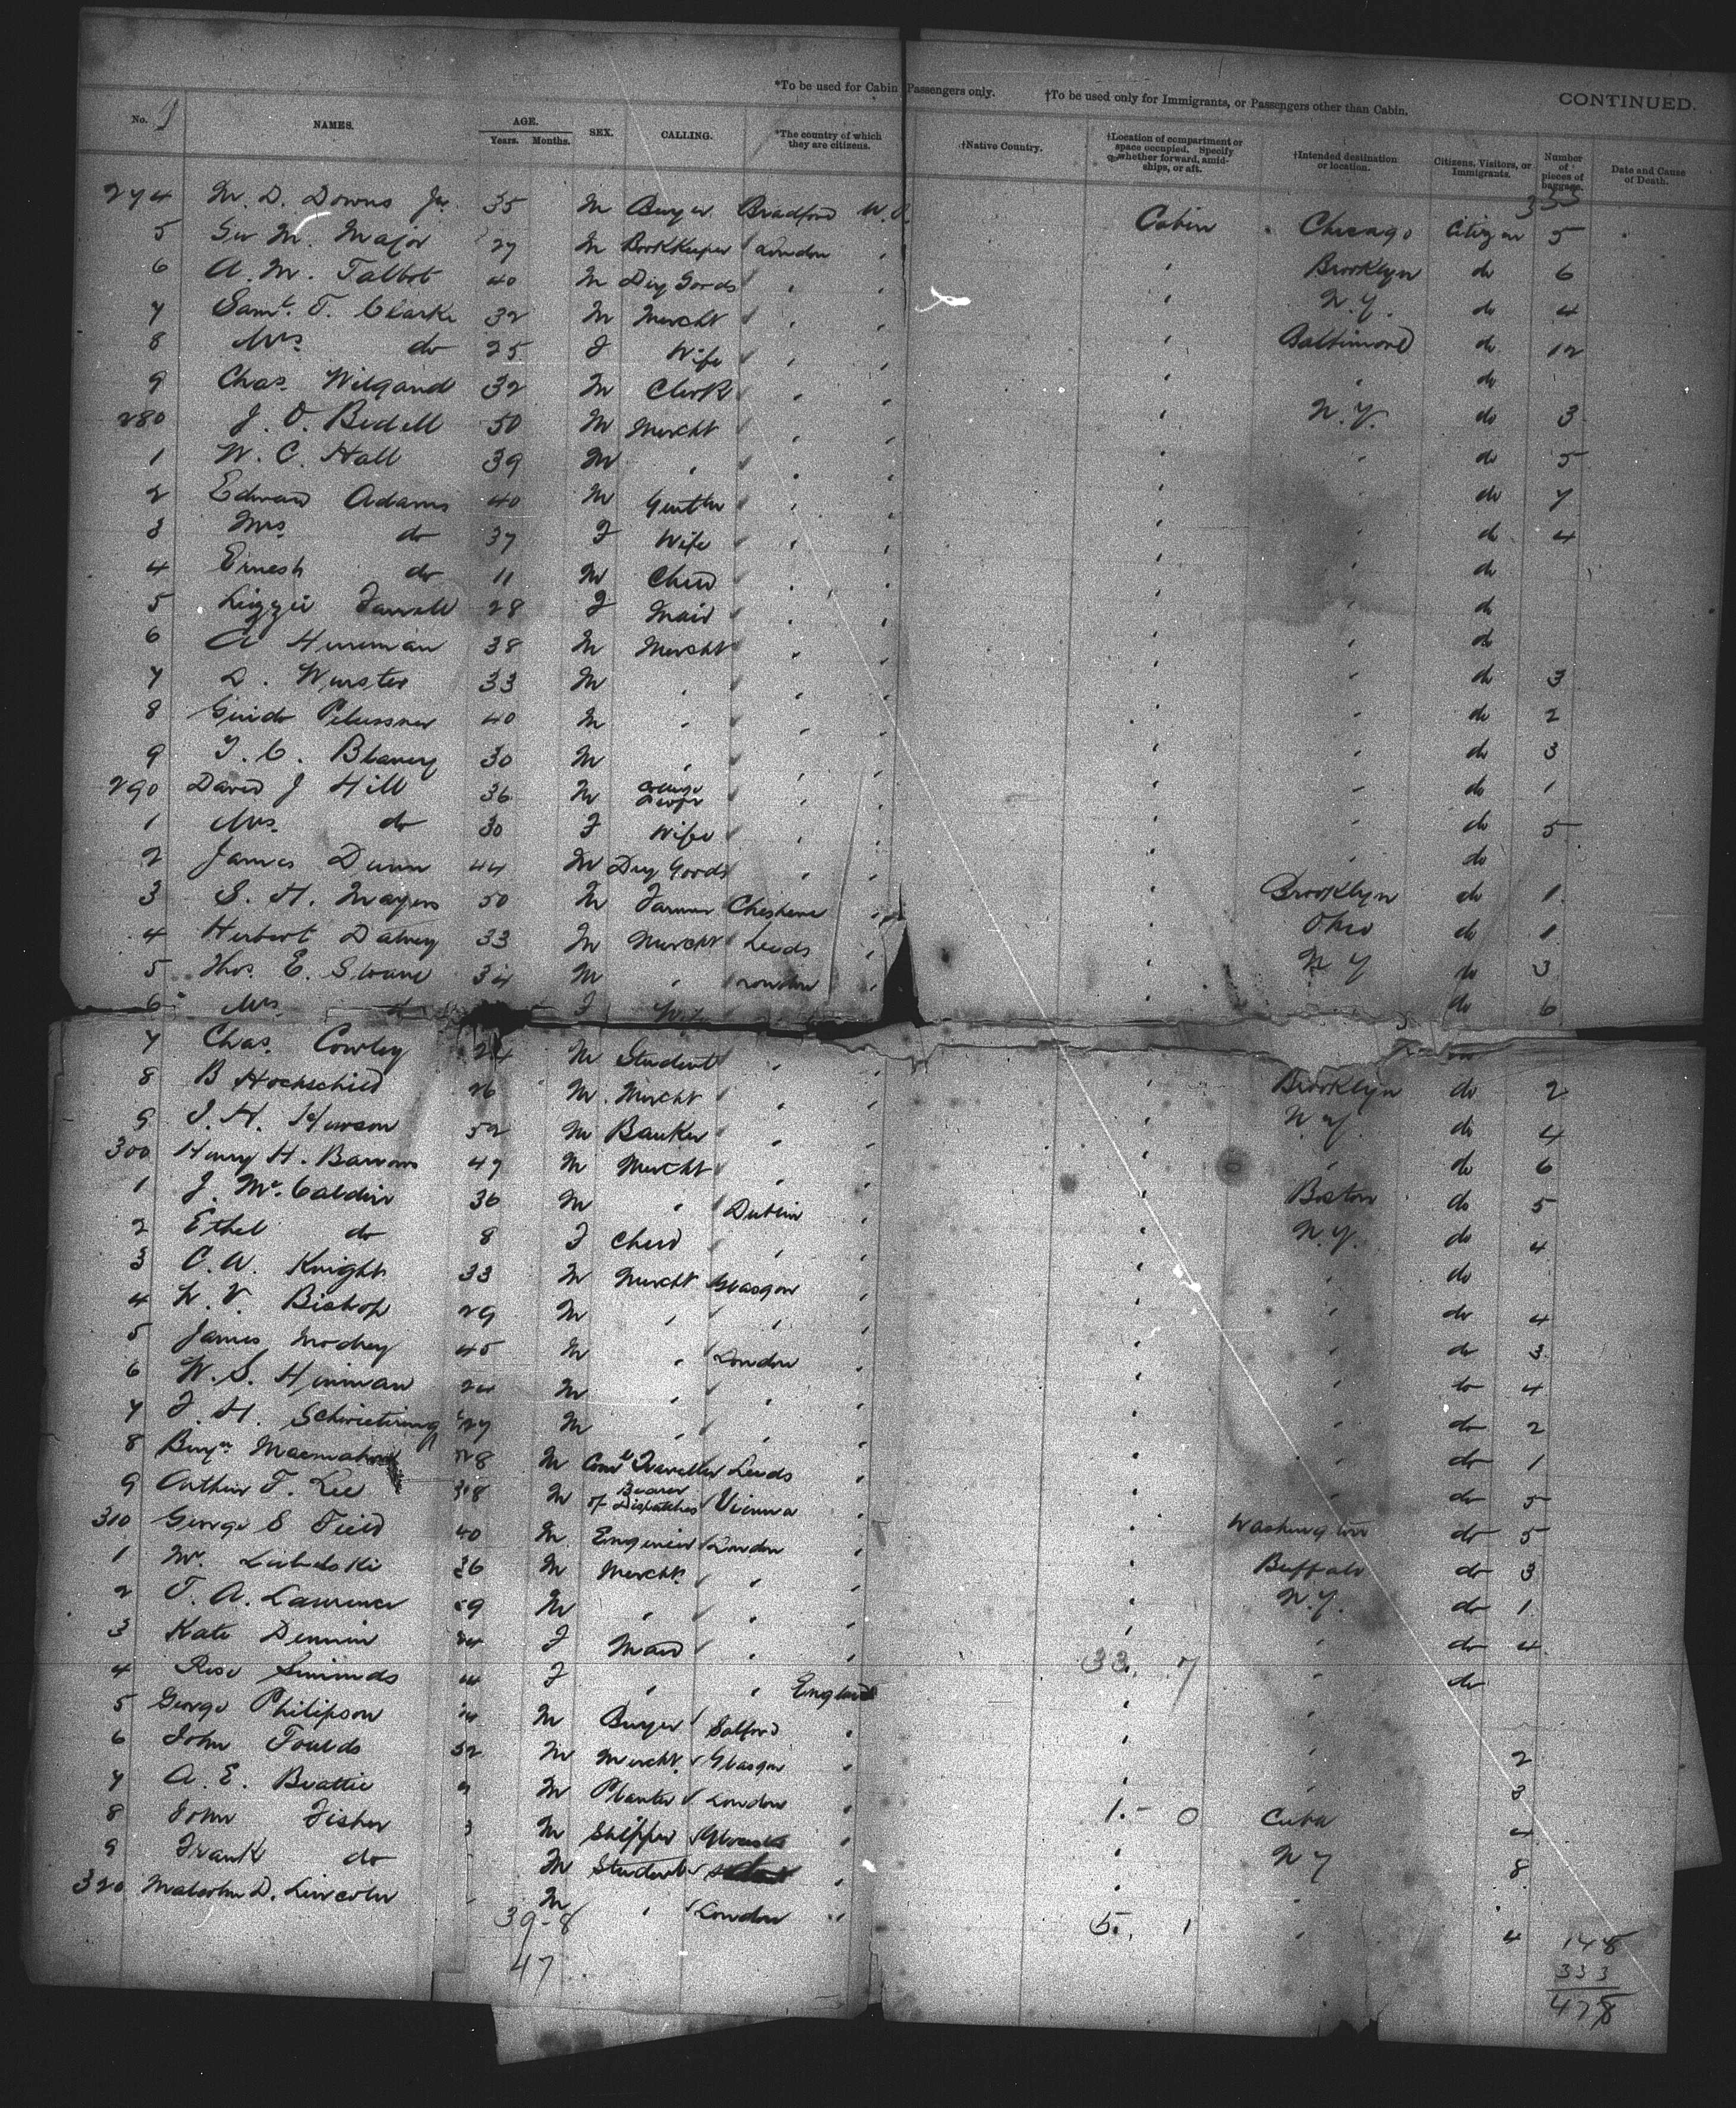 *To be used for Cabin Passengers only. †To be used only for Immigrants, or Passengers other than Cabin. CONTINUED.
No. NAMES. AGE. Years. Months. SEX. CALLING. *The country of which they are citizens. †Native Country. †Location of compartment or space occupied. Specify whether forward, amidships, or aft. †Intended destination or location. Citizens, Visitors, or Immigrants. Number of pieces of baggage. Date and Cause of Death.
333
274 M. D. Downs Jr. 35 M Buyer Bradford Cabin Chicago Citizen 5
5 M. Major 27 M Bookkeeper London " Brooklyn do 6
6 A. M. Talbot 40 M Dry Goods " " N.Y. do 4
7 Saml. T. Clarke 32 M Mercht " " Baltimore do 12
8 Mrs. do 25 F Wife " " " do
9 Chas. Wilgand 32 M Clerk " " N.Y. do 3
280 J. O. Bedell 50 M Mercht " " " do 5
1 W. C. Hall 39 M " " " " do 7
2 Edward Adams 40 M Gentln " " " do 4
3 Mrs do 37 F Wife " " " do
4 Ernest do 11 M Child " " " do
5 Lizzie Farrell 28 F Maid " " " do
6 A Herriman 38 M Mercht " " " do 3
7 D. Wurster 33 M " " " " do 2
8 Guido 40 M " " " " do 3
9 30 M " " " " do 1
290 David J Hill 36 M College " " " do 5
1 Mrs. do 30 F Wife " " " do
2 James Dunn 44 M Dry Goods " " Brooklyn do 1
3 S. H. Mayers 50 M Farmer Cheshire " Ohio do 1
4 Herbert 33 M Mercht Leeds " N.Y do 3
5 Thos. E. Sloane 34 M " London " " do 6
6 Mrs. do F Wife
7 Chas. Cowley 24 M Student " " Brooklyn do 2
8 B Hochschild 26 M Mercht " " N.Y. do 4
9 J. H. Hewson 52 M Banker " " " do 6
300 Henry H. Barrows 47 M Mercht " " Boston do 5
1 J. Mc. Caldin 36 M " Dublin " N.Y. do 4
2 Ethel do 8 F Child " " " do
3 C. A. Knight 33 M Mercht Glasgow " " do 4
4 Bishop 29 M " " " " do 3
5 James 45 M " London " " do 4
6 W. S. Hinman 24 M " " " " do 2
7 27 M " " " " do 1
8 Benjn Macmahon 28 M Coml Traveller Leeds " " do 5
9 Arthur T. Lee 38 M Bearer of Dispatches Vienna " Washington do 5
310 George S Field 40 M Engineer London " Buffalo do 3
1 36 M Mercht. " " N.Y. do 1
2 T. A. Lawrence 29 M " " " " do 4
3 Kate Dennin 24 F Maid " 33. 7 " do
4 Rose Simmids F " " England " "
5 George Philipson M Buyer Salford " " 2
6 John Foulds 32 M Mercht. Glasgow " " 3
7 A. E. Beattie M Planter London 1. - 0 Cuba 4
8 John Fisher M Shipper " N Y 8
9 Frank do M Student " "
320 Malcolm D. Lincoln M " London 5. 1 " 4
39-8
47
145
333
478